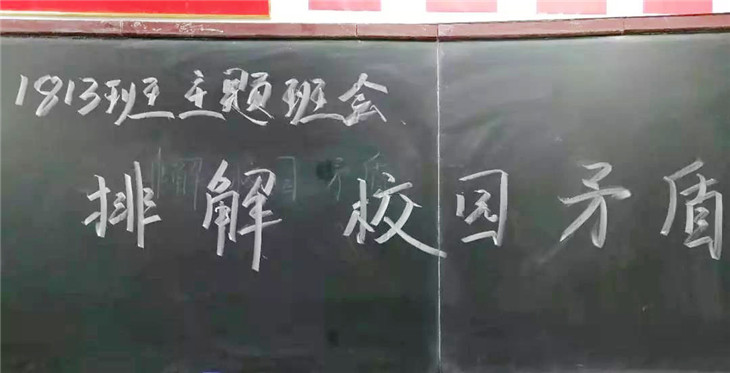 1813班主题班会
排解校园矛盾